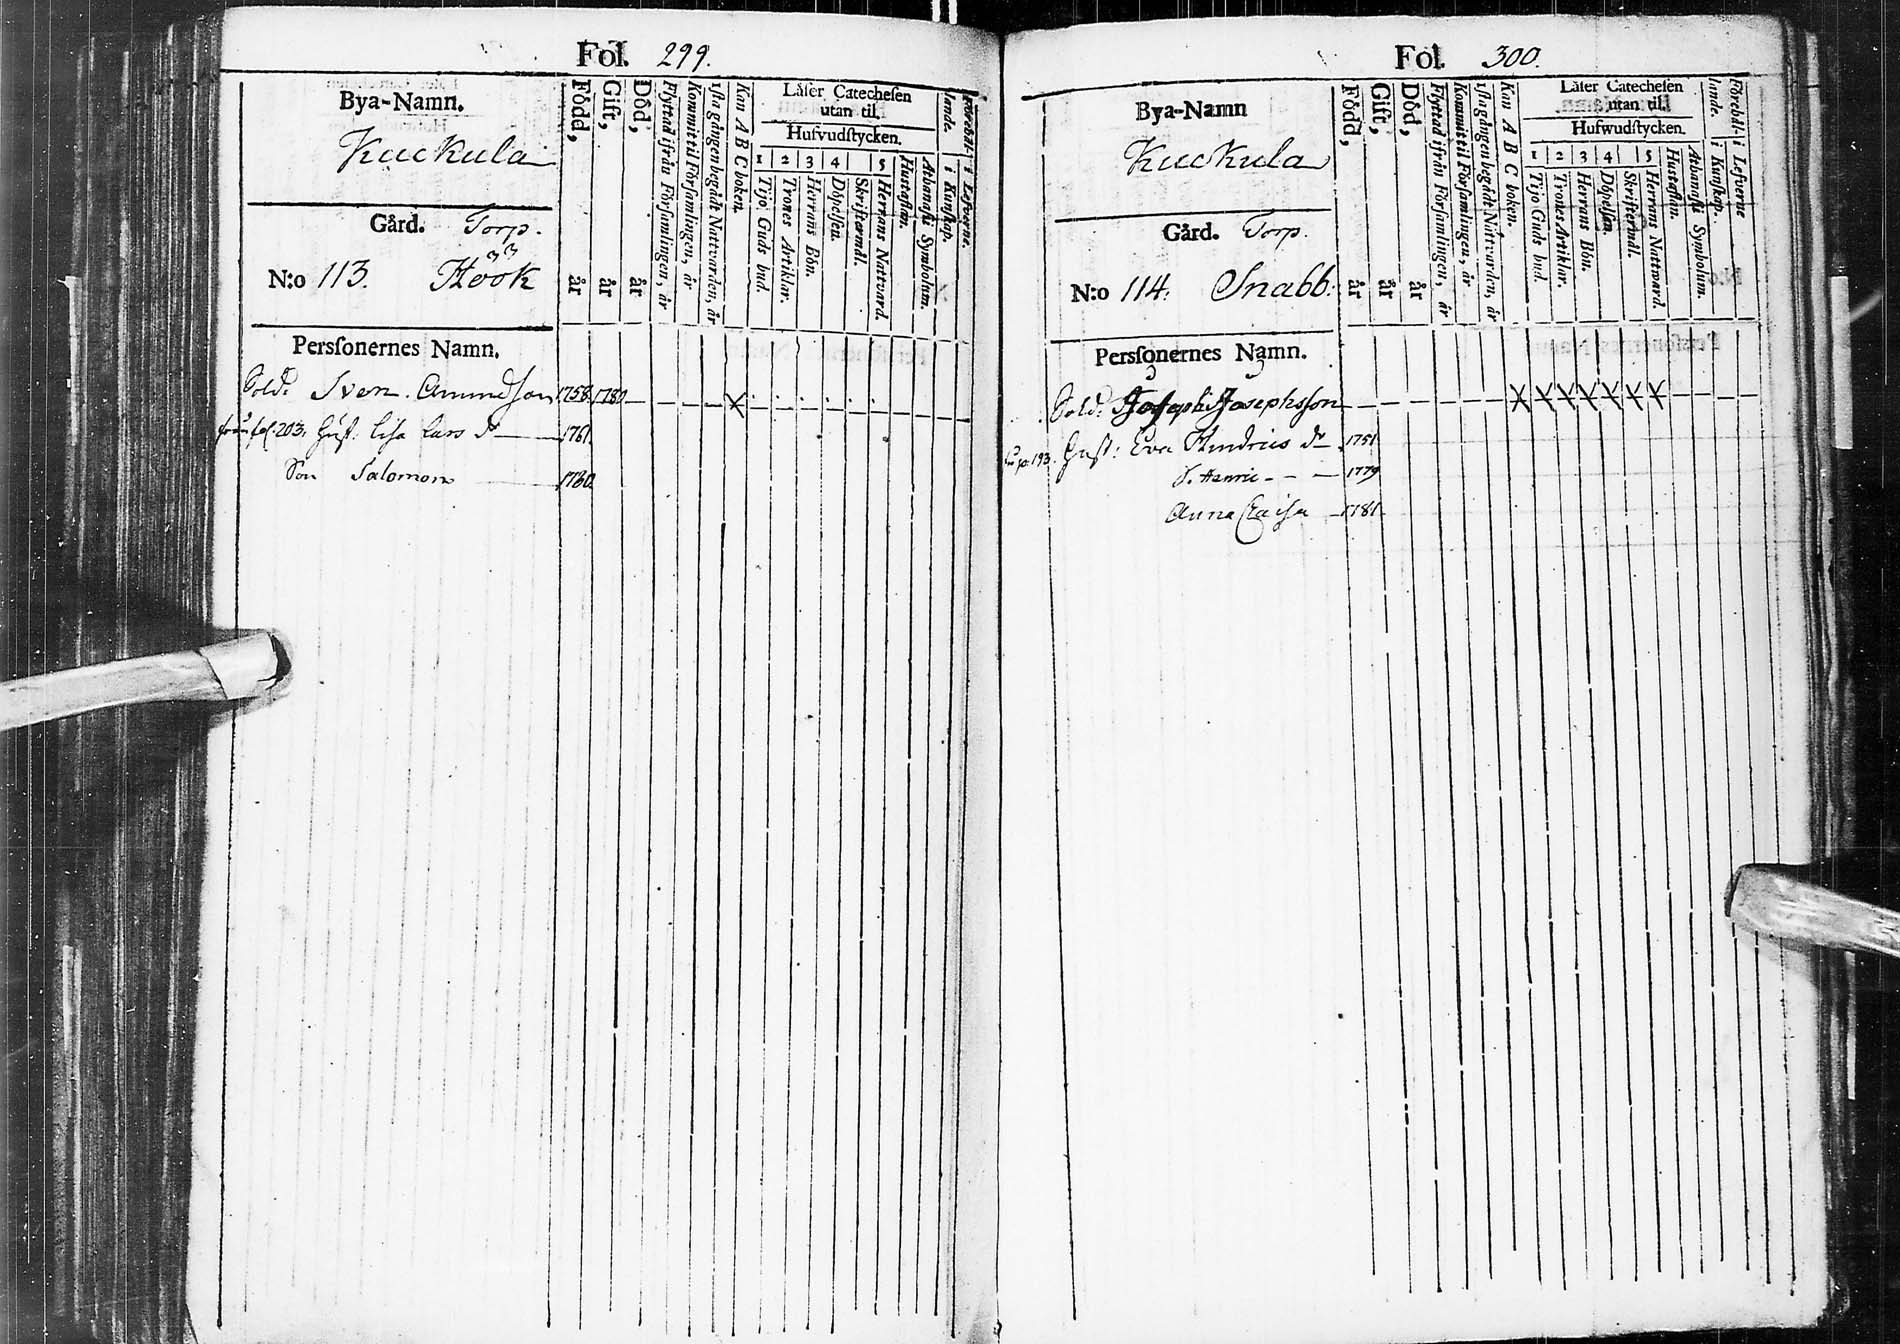 Fol. 299.
Bya-Namn.
Kuckula
Gård. Torp.
N:o 113. Höök
Persſonernes Namn.
Född, år
Gift, år
Död, år
Flyttad ifrån Förſamlingen, år
Kommit til Förſamlingen, år
1ſta gången begådt Nattvarden, år
Kan A B C boken.
Läſer Catecheſen
utan til.
Hufvudſtycken.
1 2 3 4 5
Tijo Guds bud.
Trones Artiklar.
Herrans Bön.
Döpelſen.
Skriftermål.
Herrans Nattvard.
Huſtaflan.
Athanaſii Symbolum.
Förehål-
lande.
i Kunſkap.
i Lefverne.
Sold: Sven Amundſon 1758. 1780
från fol. 203. Huſt: Liſa Lars dr 1761.
Son Salomon 1780.
Fol. 300.
Bya-Namn
Kuckula
Gård. Torp.
N:o 114. Snabb.
Persſonernes Namn.
Född, år
Gift, år
Död, år
Flyttad ifrån Förſamlingen, år
Kommit til Förſamlingen, år
1ſta gången begådt Nattvarden, år
Kan A B C boken.
Läſer Catecheſen
utan til.
Hufwudſtycken.
1 2 3 4 5
Tijo Guds bud.
Trones Artiklar.
Herrans Bön.
Döpelſen.
Skriftermål.
Herrans Nattward.
Huſtaflan.
Athanaſii Symbolum.
Förehål-
lande.
i Kunſkap.
i Lefverne
Sold: Joſeph Joſephsſon
193. Huſt: Eva Hindrics dr 1751
S. Henric 1779
Anna Caiſa 1781